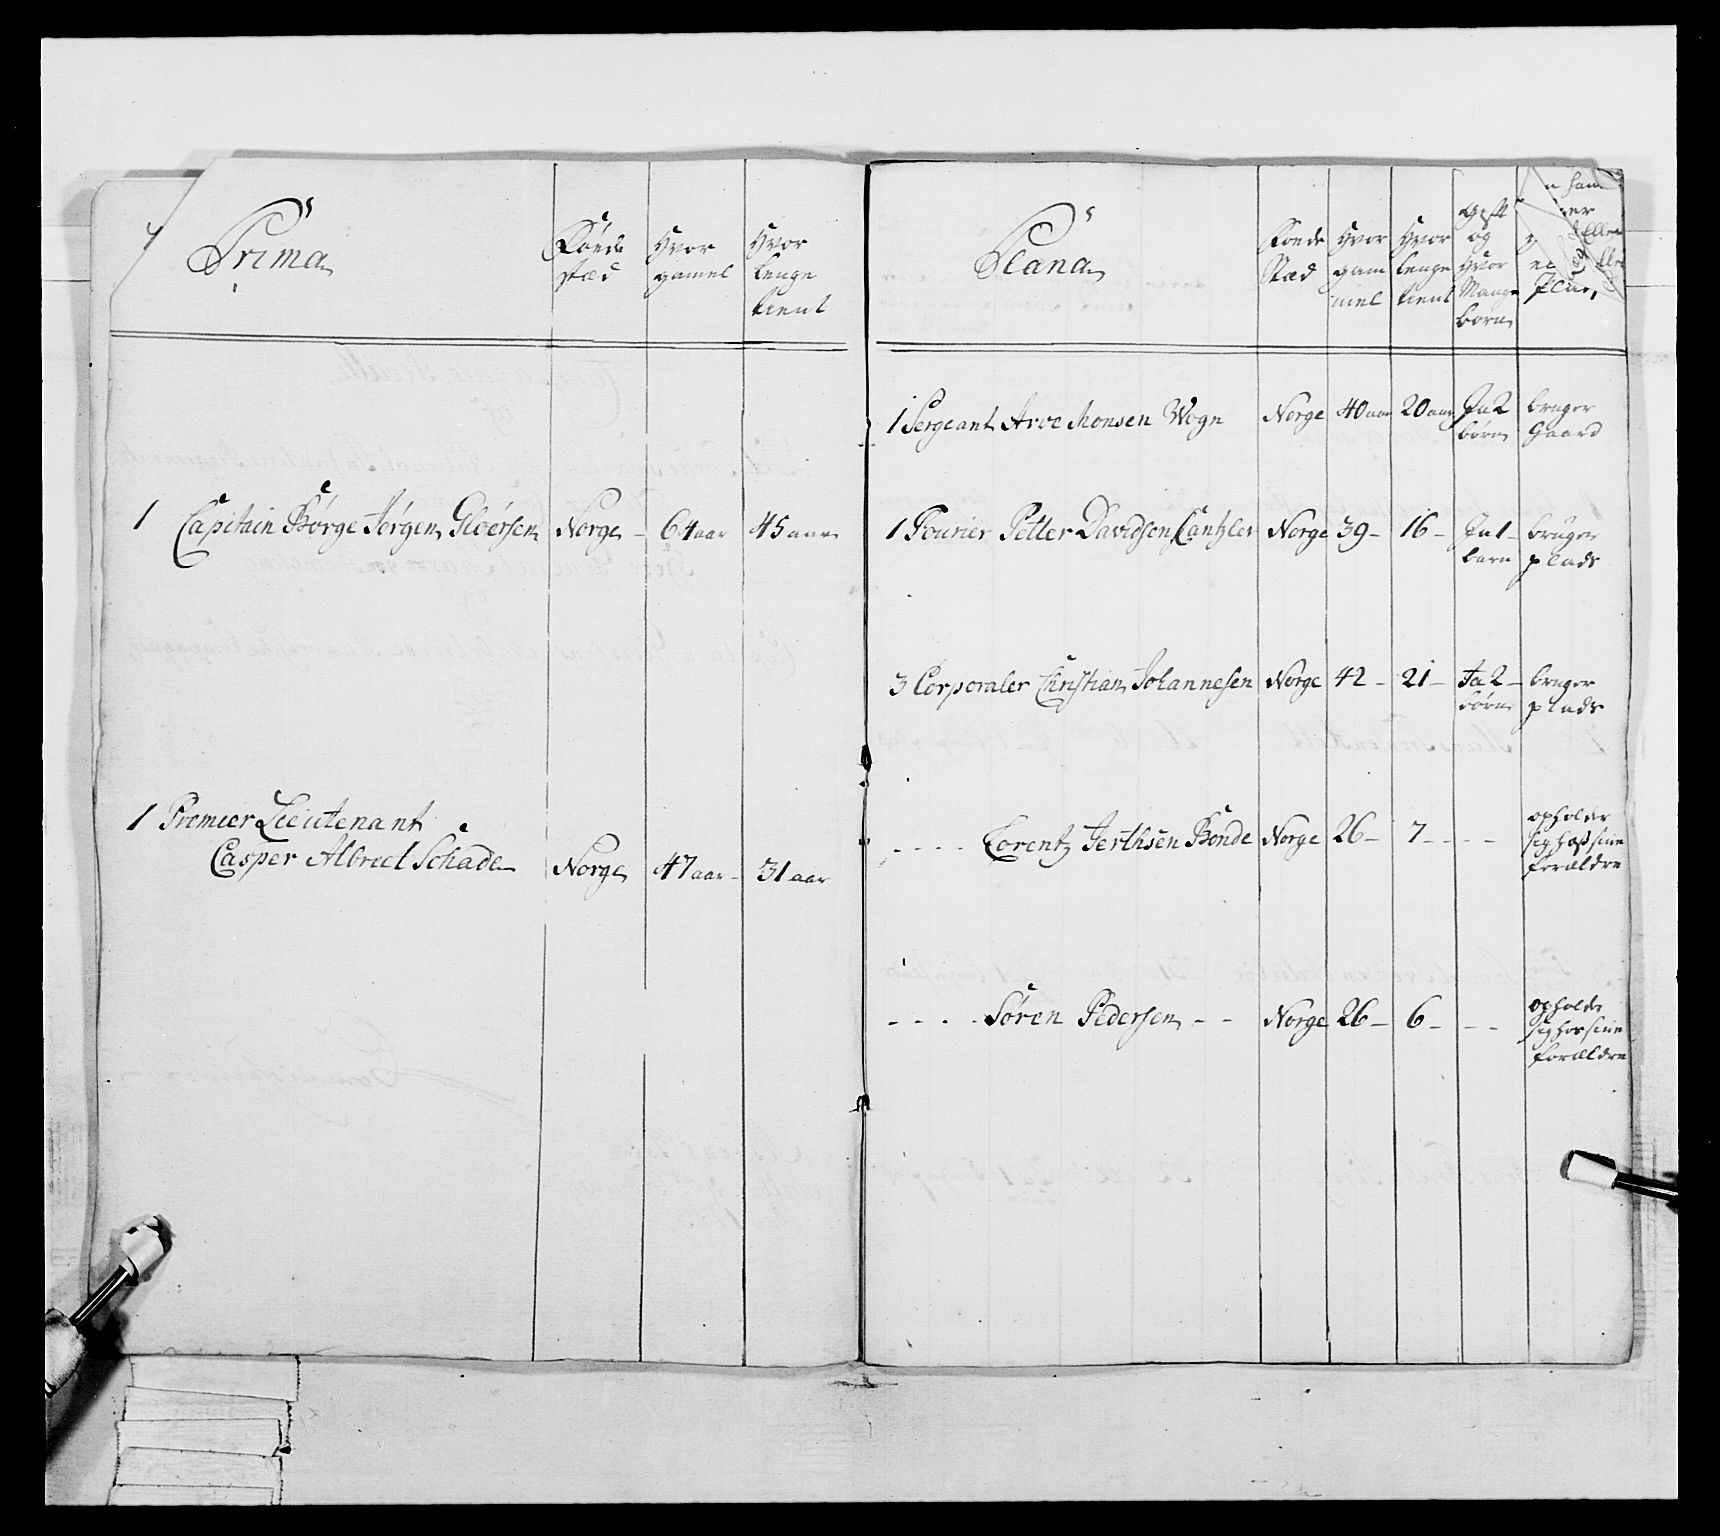 Prima
Föede
stæd
Hvor
gamel
Hvor
lenge
tient
1 Capitain Børge Jørgen Gloersen Norge - 64 aar 45 aar
1 Premier Lieutenant
Casper Albriel Schade Norge 47 aar - 31 aar
Plana
Föede
Stæd
Hvor
gam
mel
Hvor
lenge
tient
Gift
og
Hvor
Mange
børn
1 Sergeant Arve Monsen Wogn Norge 40 aar 20 aar Ja 2 bruger
børn Gaard
1 Fourier Petter Davidsen Cantzler Norge 39 - 16 - Ja 1 - bruger
barn plads
3 Corporaler Christian Johannesen Norge 42 - 21 - Ja 2 - bruger
børn plads
- - - - Lorentz Jerthsen Bonde Norge 26 - 7 - - - - opholder
sig hoss sine
forældre
- - - - Sören Pedersen - - Norge 26 - 6 - - - opholder
sig hos sine
forældre